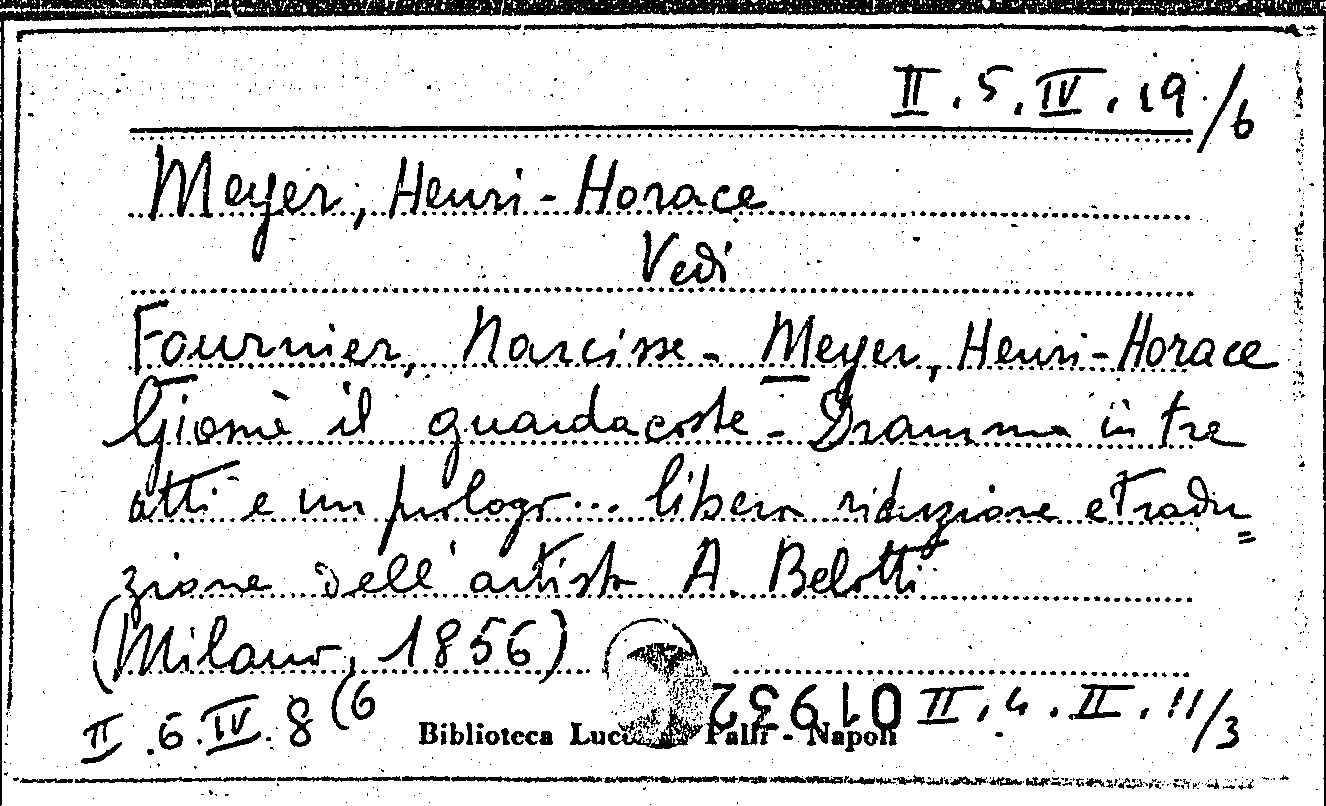 II.5.IV.19./6
Meyer, Henri-Horace
Vedi
Fournier, Narcisse - Meyer, Henri-Horace
Giosuè il guardacoste - Dramma in tre
atti e un prologo... libera riduzione e tradu=
zione dell'artista A. Belotti
(Milano, 1856)
II.6.IV.8(6
Biblioteca Palli - Napoli
II.4.II.11/3